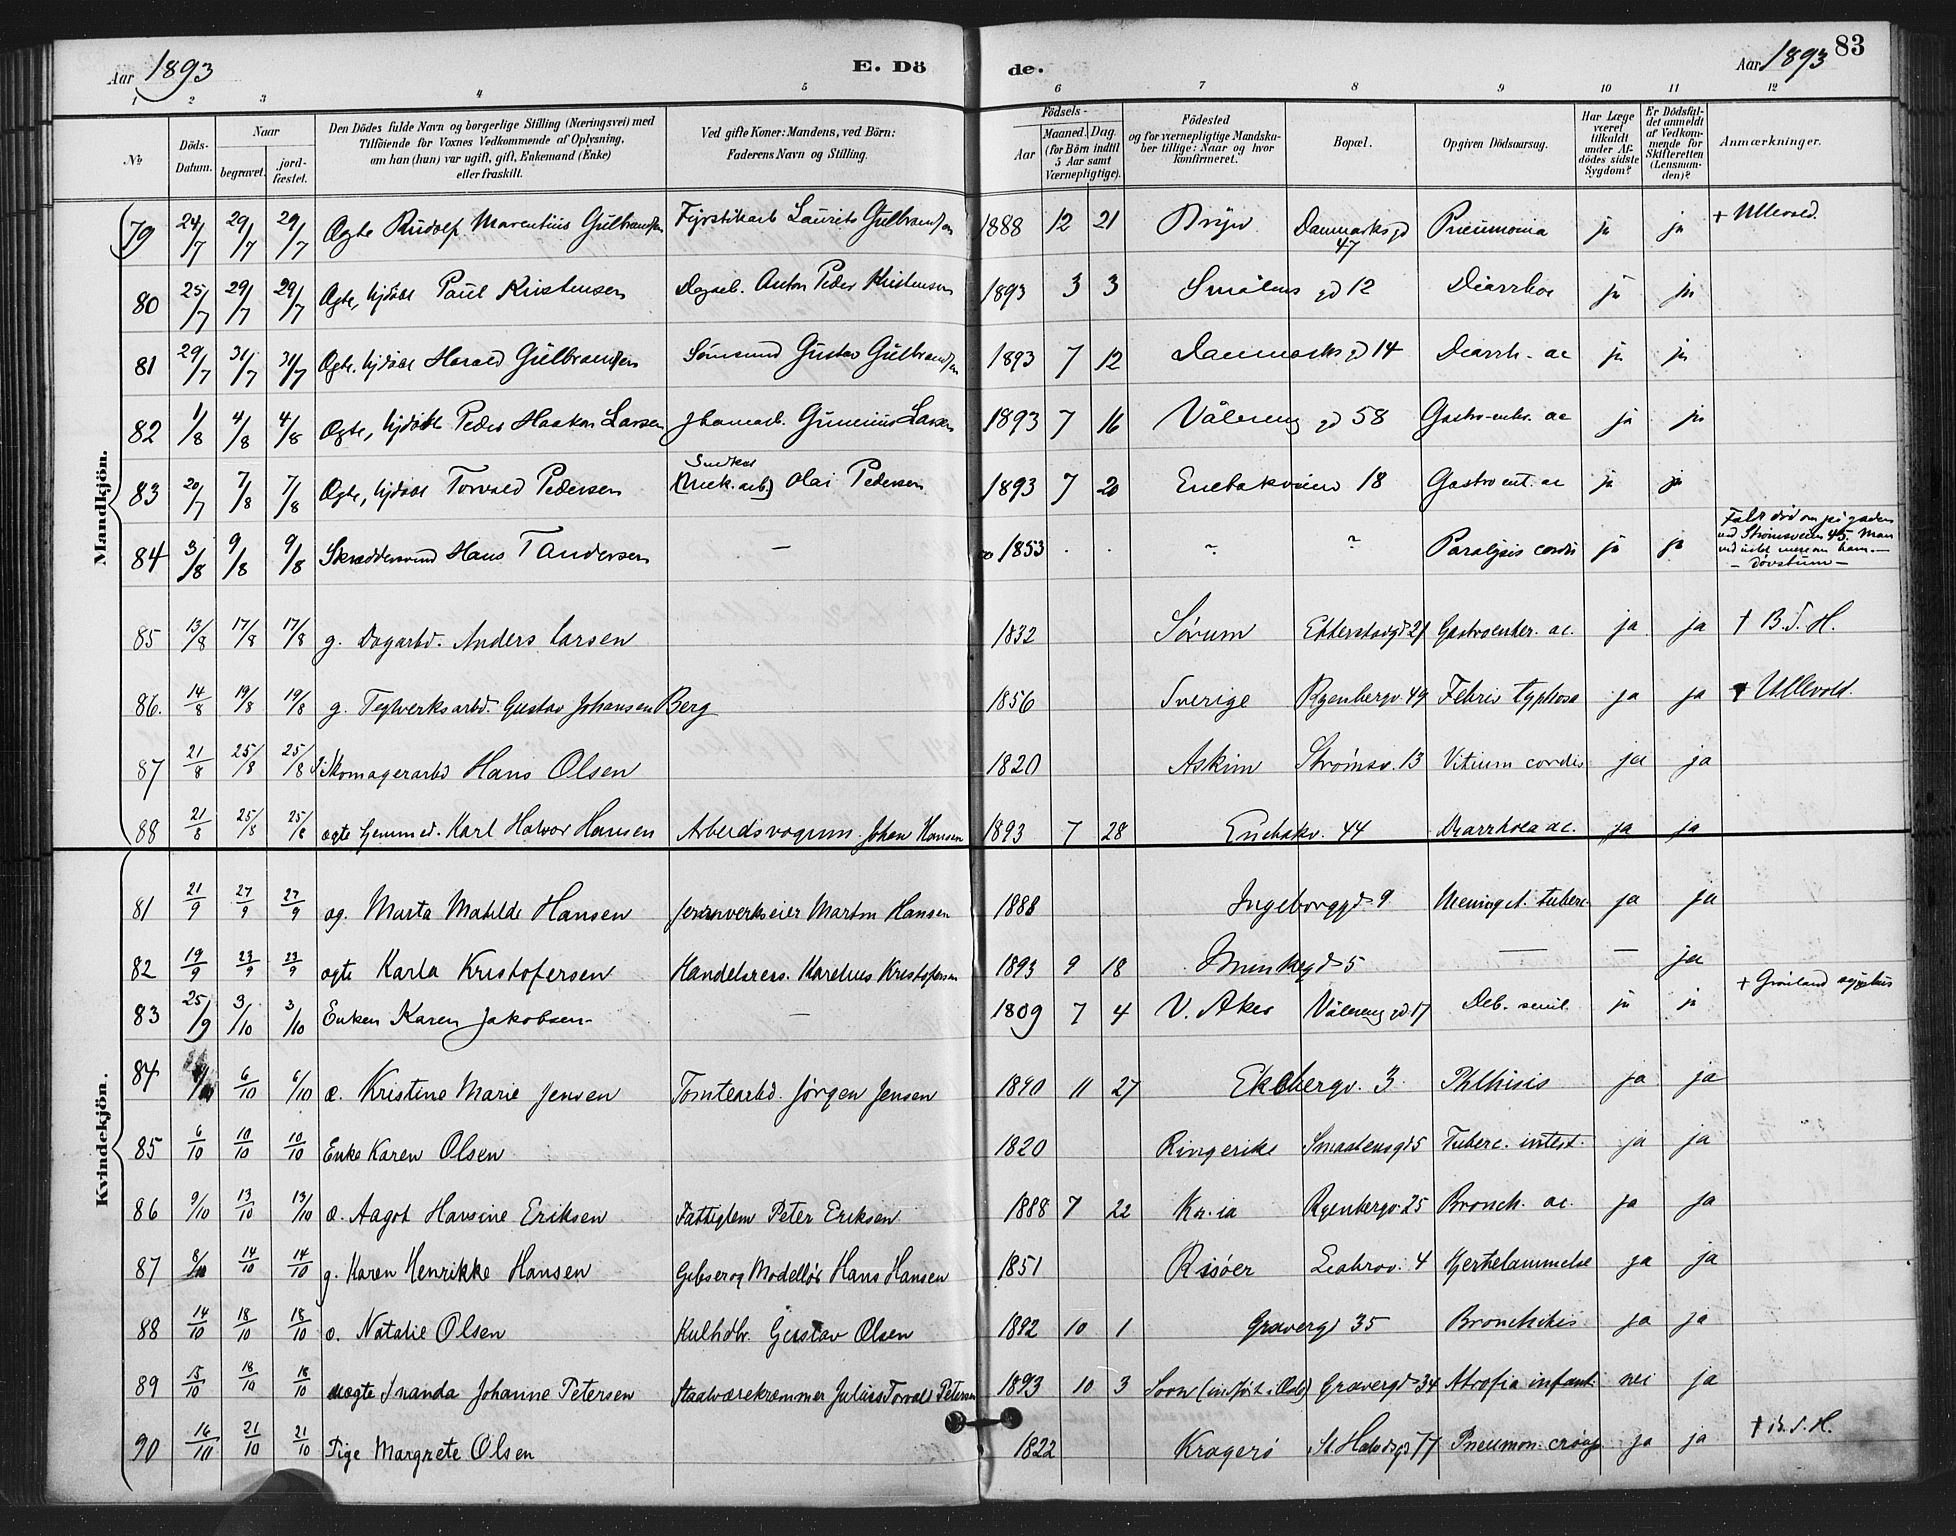 Aar 1893 E. Dö de. Aar 1893 83
1 2 3 4 5 6 7 8 9 10 11 12
No
Döds-Datum.
Naar
begravet.
jord-fæstet.
Den Dödes fulde Navn og borgerlige Stilling (Næringsvei) med
Tilföiende for Voxnes Vedkommende af Oplysning,
om han (hun) var ugift, gift, Enkemand (Enke)
eller fraskilt.
Ved gifte Koner: Mandens, ved Börn:
Faderens Navn og Stilling.
Födsels-
Aar
Maaned. Dag.
(for Börn indtil
5 Aar samt
Værnepligtige).
Födested
og for værnepligtige Mandska-
ber tillige: Naar og hvor
konfirmeret.
Bopæl.
Opgiven Dödsaarsag.
Har Læge
været
tilkaldt
under Af-
dödes sidste
Sygdom?
Er Dödsfal-
det anmeldt
af Vedkom-
mende for
Skifteretten
(Lensman-
den)?
Anmærkninger.
Mandkjön.
79 24/7 29/7 29/7 Ægte Rudolf Marentius Gulbrandsen Fyrstikarb Laurits Gulbrandsen 1888 12 21 Bryn Danmarks gd 47 Pneumonia ja ja + Ullevold.
80 25/7 29/7 29/7 Ægte, hjdøbt Paul Kristensen Dagarb. Anton Peder Kristensen 1893 3 3 Smålens gd 12 Diarrhoe ja ja
81 29/7 31/7 31/7 Ægte, hjdøbt Harald Gulbrandsen Sømand Gustav Gulbrandsen 1893 7 12 Danmarks gd 14 Diarrh. ac ja ja
82 1/8 4/8 4/8 Ægte, hjdøbt Peder Haakon Larsen Gunerius Larsen 1893 7 16 Vålereng gd 58 Gastro-enter. ac ja ja
83 20/7 7/8 7/8 Ægte, hjdøbt Torvald Pedersen Snedker Olai Pedersen 1893 7 20 Enebakveien 18 Gastroent. ac ja ja
84 3/8 9/8 9/8 Skræddersvend Hans T Andersen — 1853 . . " " Paralysis cordis ja ja Faldt død om på gaden
ved Strømsveien 45. Man
ved intet mere om ham.—
— Døvstum —
85 13/8 17/8 17/8 g. Dagarbd. Anders Larsen 1832 Sørum Etterstadgd 21 Gastroenter. ac. ja ja † B. S. H.
86. 14/8 19/8 19/8 g. Teglverksarbd. Gustav Johansen Berg 1856 Sverige Ryenbergv. 49 Febris typhosa ja ja † Ullevold.
87 21/8 25/8 25/8 Skomagerarbd Hans Olsen 1820 Askim Strømsv. 13 Vitium cordis ja ja
88 21/8 25/8 25/8 ægte hjemmed. Karl Halvor Hansen Arbeidsvognm. Johan Hansen 1893 7 28 Enebakv. 44 Diarrhoea ac. ja ja
Kvindekjön.
81 21/9 27/9 27/9 æg. Marta Matilde Hansen Martin Hansen 1888 Ingeborggd. 9 Meningit. tuberc. ja ja
82 19/9 23/9 23/9 ægte Karla Kristofersen Handelsreis. Karelius Kristofersen 1893 9 18 Munkegd 5 — — ja
83 25/9 3/10 3/10 Enken Karen Jakobsen — 1809 7 4 V. Aker Vålereng gd 17 Deb. senil. ja ja + Grønland sygehus
84 6/10 6/10 æ. Kristine Marie Jensen Tomtearbd. Jørgen Jensen 1890 11 27 Ekebergv. 3 Phthisis ja ja
85 6/10 10/10 10/10 Enke Karen Olsen 1820 Ringerike Smaalensgd 5 Tuberc. intest. ja ja
86 9/10 13/10 13/10 æ. Aagot Hansine Eriksen Fattiglem Peter Eriksen 1888 7 22 Kr.ia Ryenbergv. 25 Bronch. ac. ja ja
87 8/10 14/10 14/10 g. Karen Henrikke Hansen Gibser og Modellør Hans Hansen 1851 Risøer Leabrov. 4 Hjertelammelse ja ja
88 14/10 18/10 18/10 æ. Natalie Olsen Kulhdlr. Gustav Olsen 1892 10 1 Gravergd 35 Bronchitis ja ja
89 15/10 18/10 18/10 uægte Inanda Johanne Petersen Staalvarekræmmer Julius Torvald Petersen 1893 10 3 Soon (indført i Oslo) Gravergd 34 Atrofia infant nei ja
90 16/10 21/10 21/10 Pige Margrete Olsen 1822 Kragerø St. Halvdsgd 77 Pneumon. croup. ja ja † B. S. H.